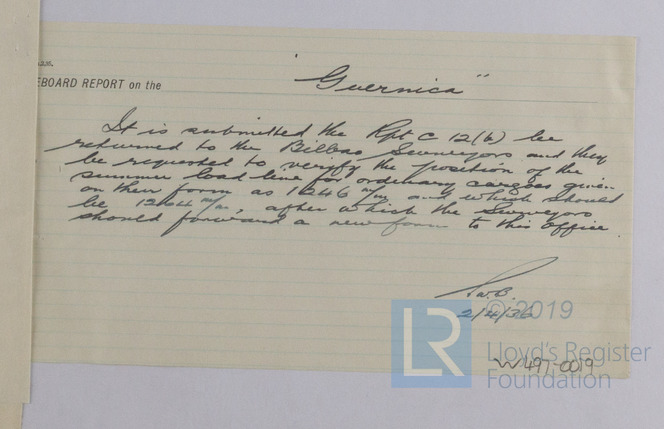 EBOARD REPORT on the
"Guernica"
It is submitted the Rpt C 12(b) be
returned to the Bilbao Surveyors and they
be requested to veryfy the position of the
summer load line for ordinary cargoes given
on their form as 1246 m/m and which should
be 1264 m/m, after which the Surveyors
should forward a new form to this office.
2/4/36
© 2019
LR
Lloyd's Register
Foundation
W497-0019